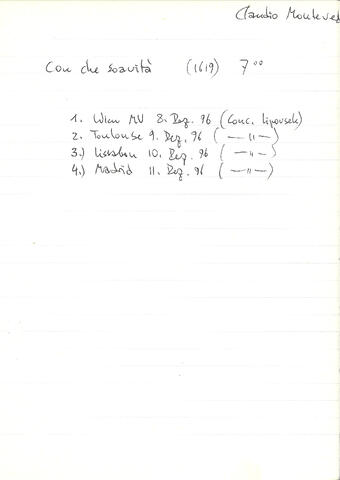 Claudio Monteved
Con che soavità (1619) 7⁰⁰
1. Wien MV 8. Dez. 96 (Conc. Lipovsek)
2. Toulouse 9. Dez. 96 ( — " — )
3.) Lissabon 10. Dez. 96 ( — " — )
4.) Madrid 11. Dez. 96 ( — " — )